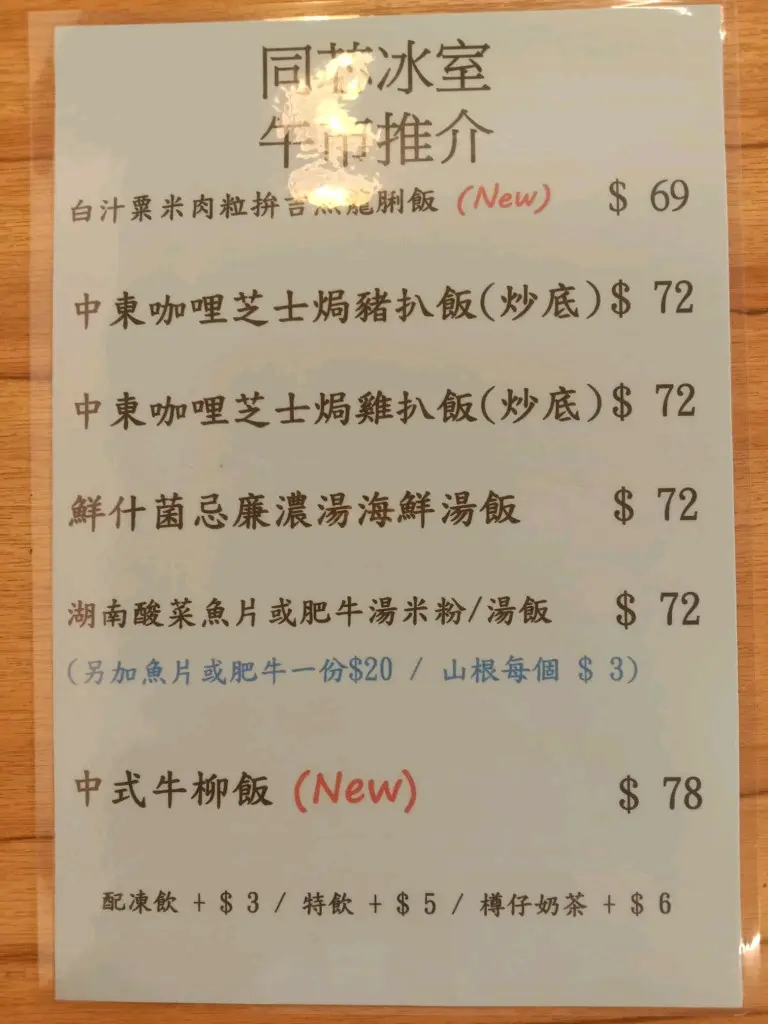 同芯冰室
午市推介
白汁粟米肉粒拚吉列龍脷飯 (New) $ 69
中東咖哩芝士焗豬扒飯(炒底) $ 72
中東咖哩芝士焗雞扒飯(炒底) $ 72
鮮什菌忌廉濃湯海鮮湯飯 $ 72
湖南酸菜魚片或肥牛湯米粉/湯飯 $ 72
(另加魚片或肥牛一份$20 / 山根每個 $ 3)
中式牛柳飯 (New) $ 78
配凍飲 + $ 3 / 特飲 + $ 5 / 樽仔奶茶 + $ 6